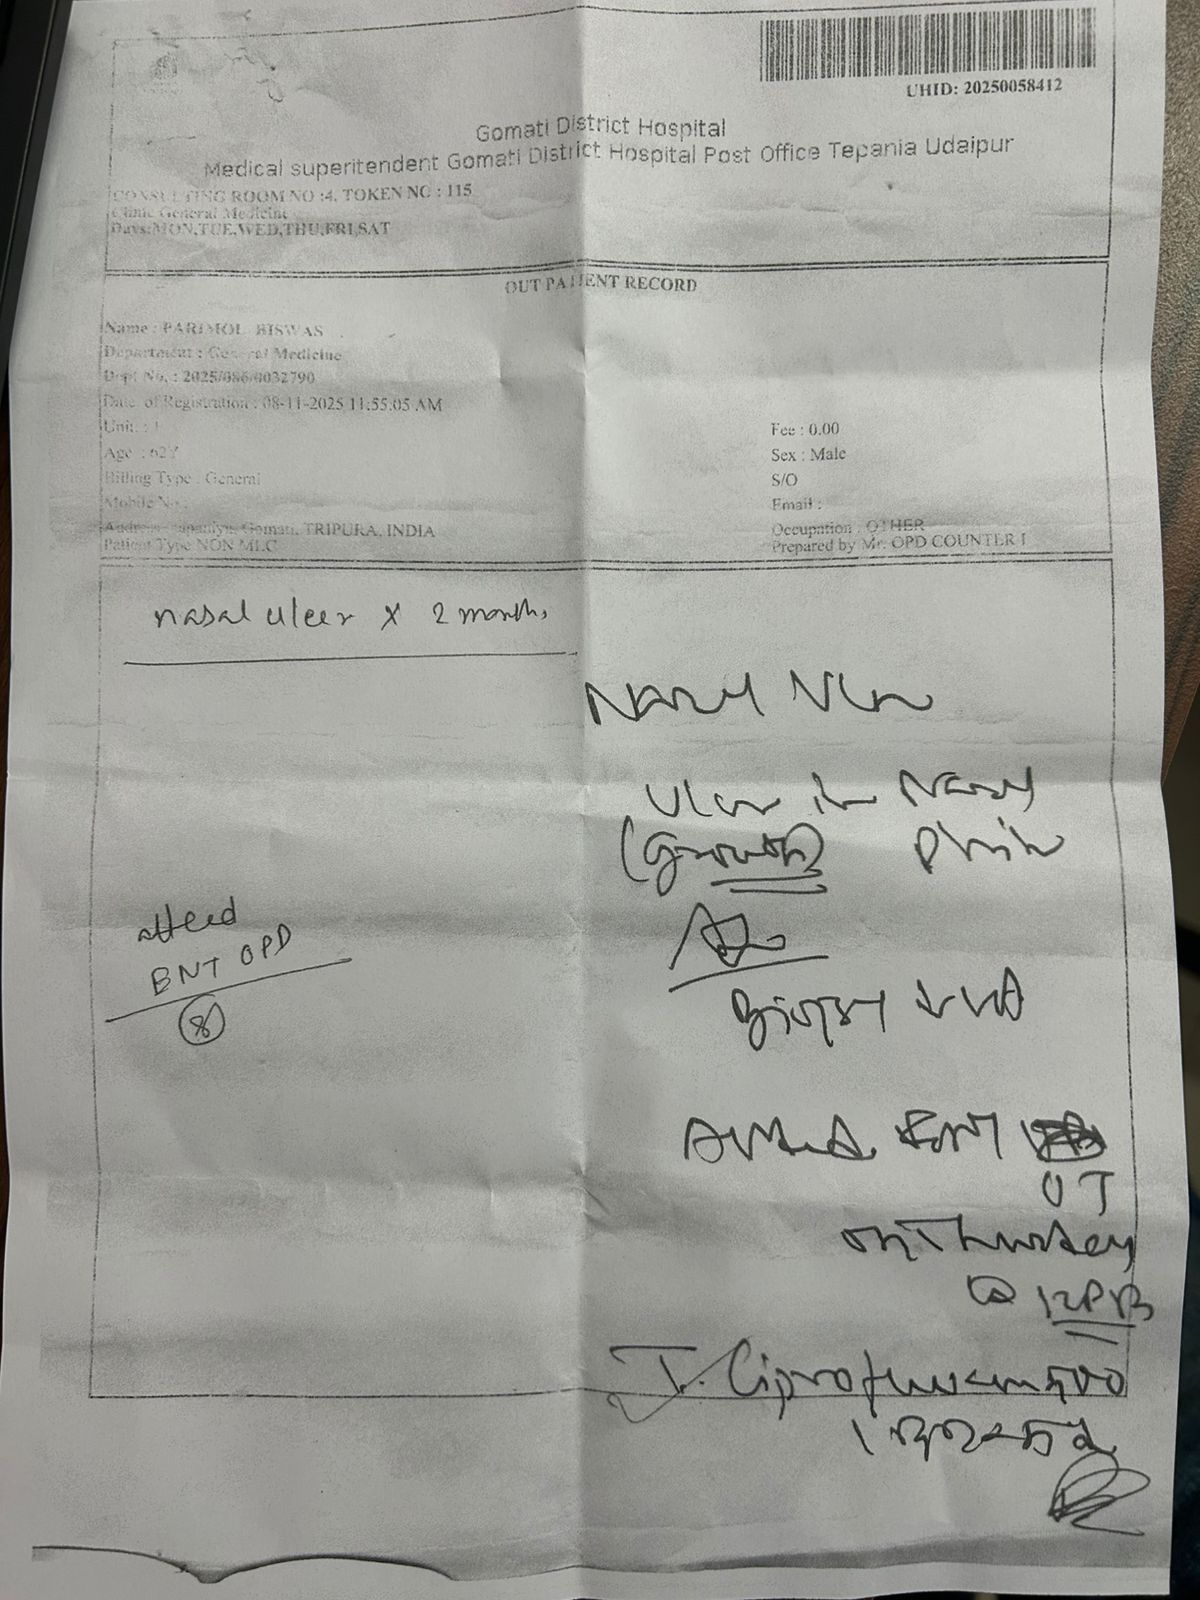 UHID: 20250058412
Gomati District Hospital
Medical superitendent Gomati District Hospital Post Office Tepania Udaipur
CONSULTING ROOM NO :4, TOKEN NO : 115
Clinic General Medicine
Days:MON,TUE,WED,THU,FRI,SAT
OUT PATIENT RECORD
Name : PARIMOL BISWAS
Department : General Medicine
Dept No. : 2025/086/0032790
Date of Registration : 08-11-2025 11:55:05 AM
Unit : 1
Fee : 0.00
Age : 62Y
Sex : Male
Billing Type : General
S/O
Mobile No :
Email :
Address Gomati, TRIPURA, INDIA
Occupation : OTHER
Patient Type NON MLC
Prepared by Mr. OPD COUNTER 1
nasal ulcer x 2 months
Nasal Ulcer
Ulcer in Nasal
(Growth)
attend
ENT OPD
8
Biopsy
Attend ENT
OT
on Thursday
@ 12PM
T. Ciprofloxacin 500